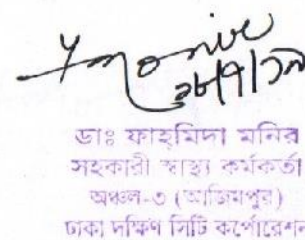 ২৮/৭/১৯
ডাঃ ফাহমিদা মনির
সহকারী স্বাস্থ্য কর্মকর্তা
অঞ্চল-৩ (আজিমপুর)
ঢাকা দক্ষিণ সিটি কর্পোরেশন